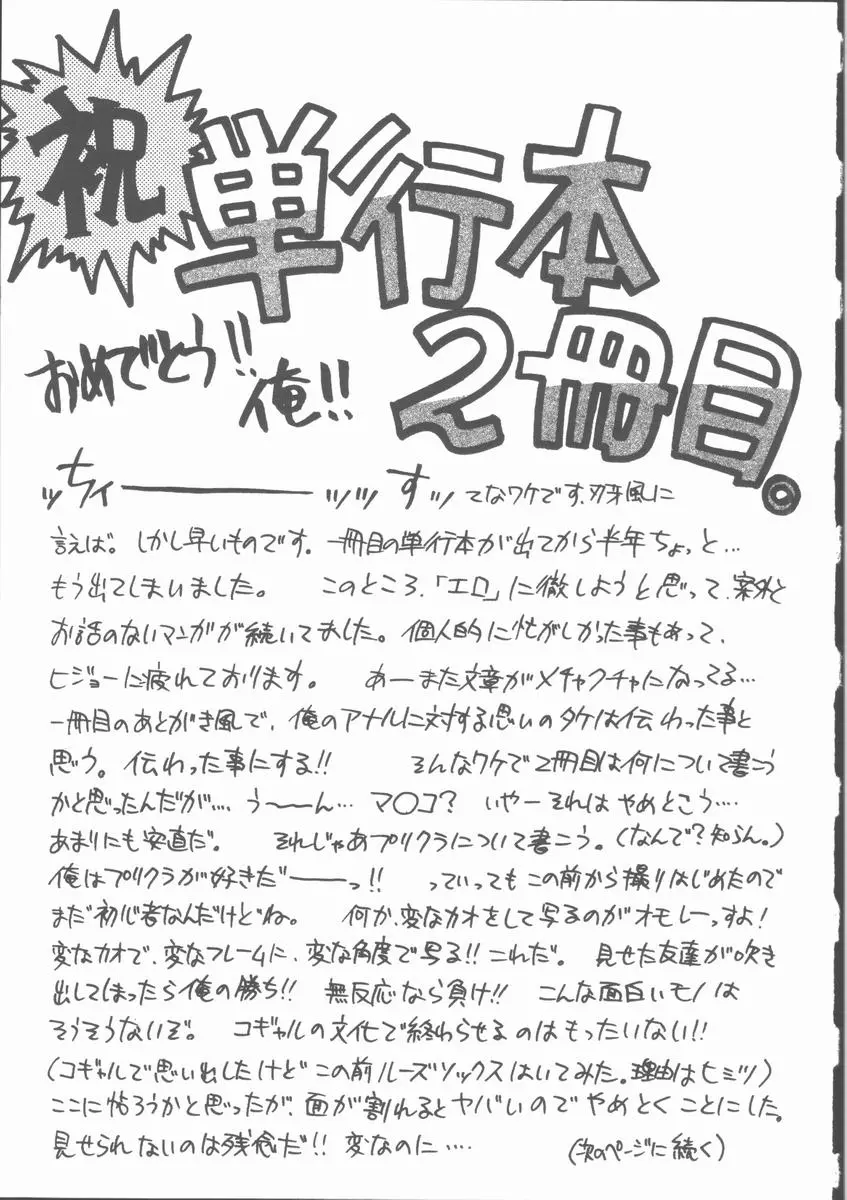 祝
単行本
2冊目。
おめでとう!!
俺!!
ッちィ――――ッッすッ てなワケです、刃牙風に
言えば。 しかし早いものです。一冊目の単行本が出てから半年ちょっと…
もう出てしまいました。 このところ、「エロ」に徹しようと思って、案外と
お話のないマンガが続いてました。個人的に忙がしかった事もあって、
ヒジョーに疲れております。 あーまた文章がメチャクチャになってる…
一冊目のあとがき風で、俺のアナルに対する思いのタケは伝わった事と
思う。伝わった事にする!! そんなワケで2冊目は何について書こう
かと思ったんだが… う〜〜ん… マ○コ? いやーそれは やめとこう…
あまりにも安直だ。 それじゃあプリクラについて書こう。(なんで?知らん。)
俺はプリクラが好きだ――っ!! っていっても この前から撮りはじめたので
まだ初心者なんだけどね。 何か、変なカオをして写るのがオモレーっすよ!
変なカオで、変なフレームに、変な角度で写る!!これだ。 見せた友達が吹き
出してしまったら俺の勝ち!! 無反応なら負け!! こんな面白いモノは
そうそうないぞ。 コギャルの文化で終わらせるのはもったいない!!
(コギャルで思い出したけど この前ルーズソックスはいてみた。理由はヒミツ)
ここに帖ろうかと思ったが、面が割れるとヤバいのでやめとくことにした。
見せられないのは残念だ!! 変なのに…
(次のページに続く)